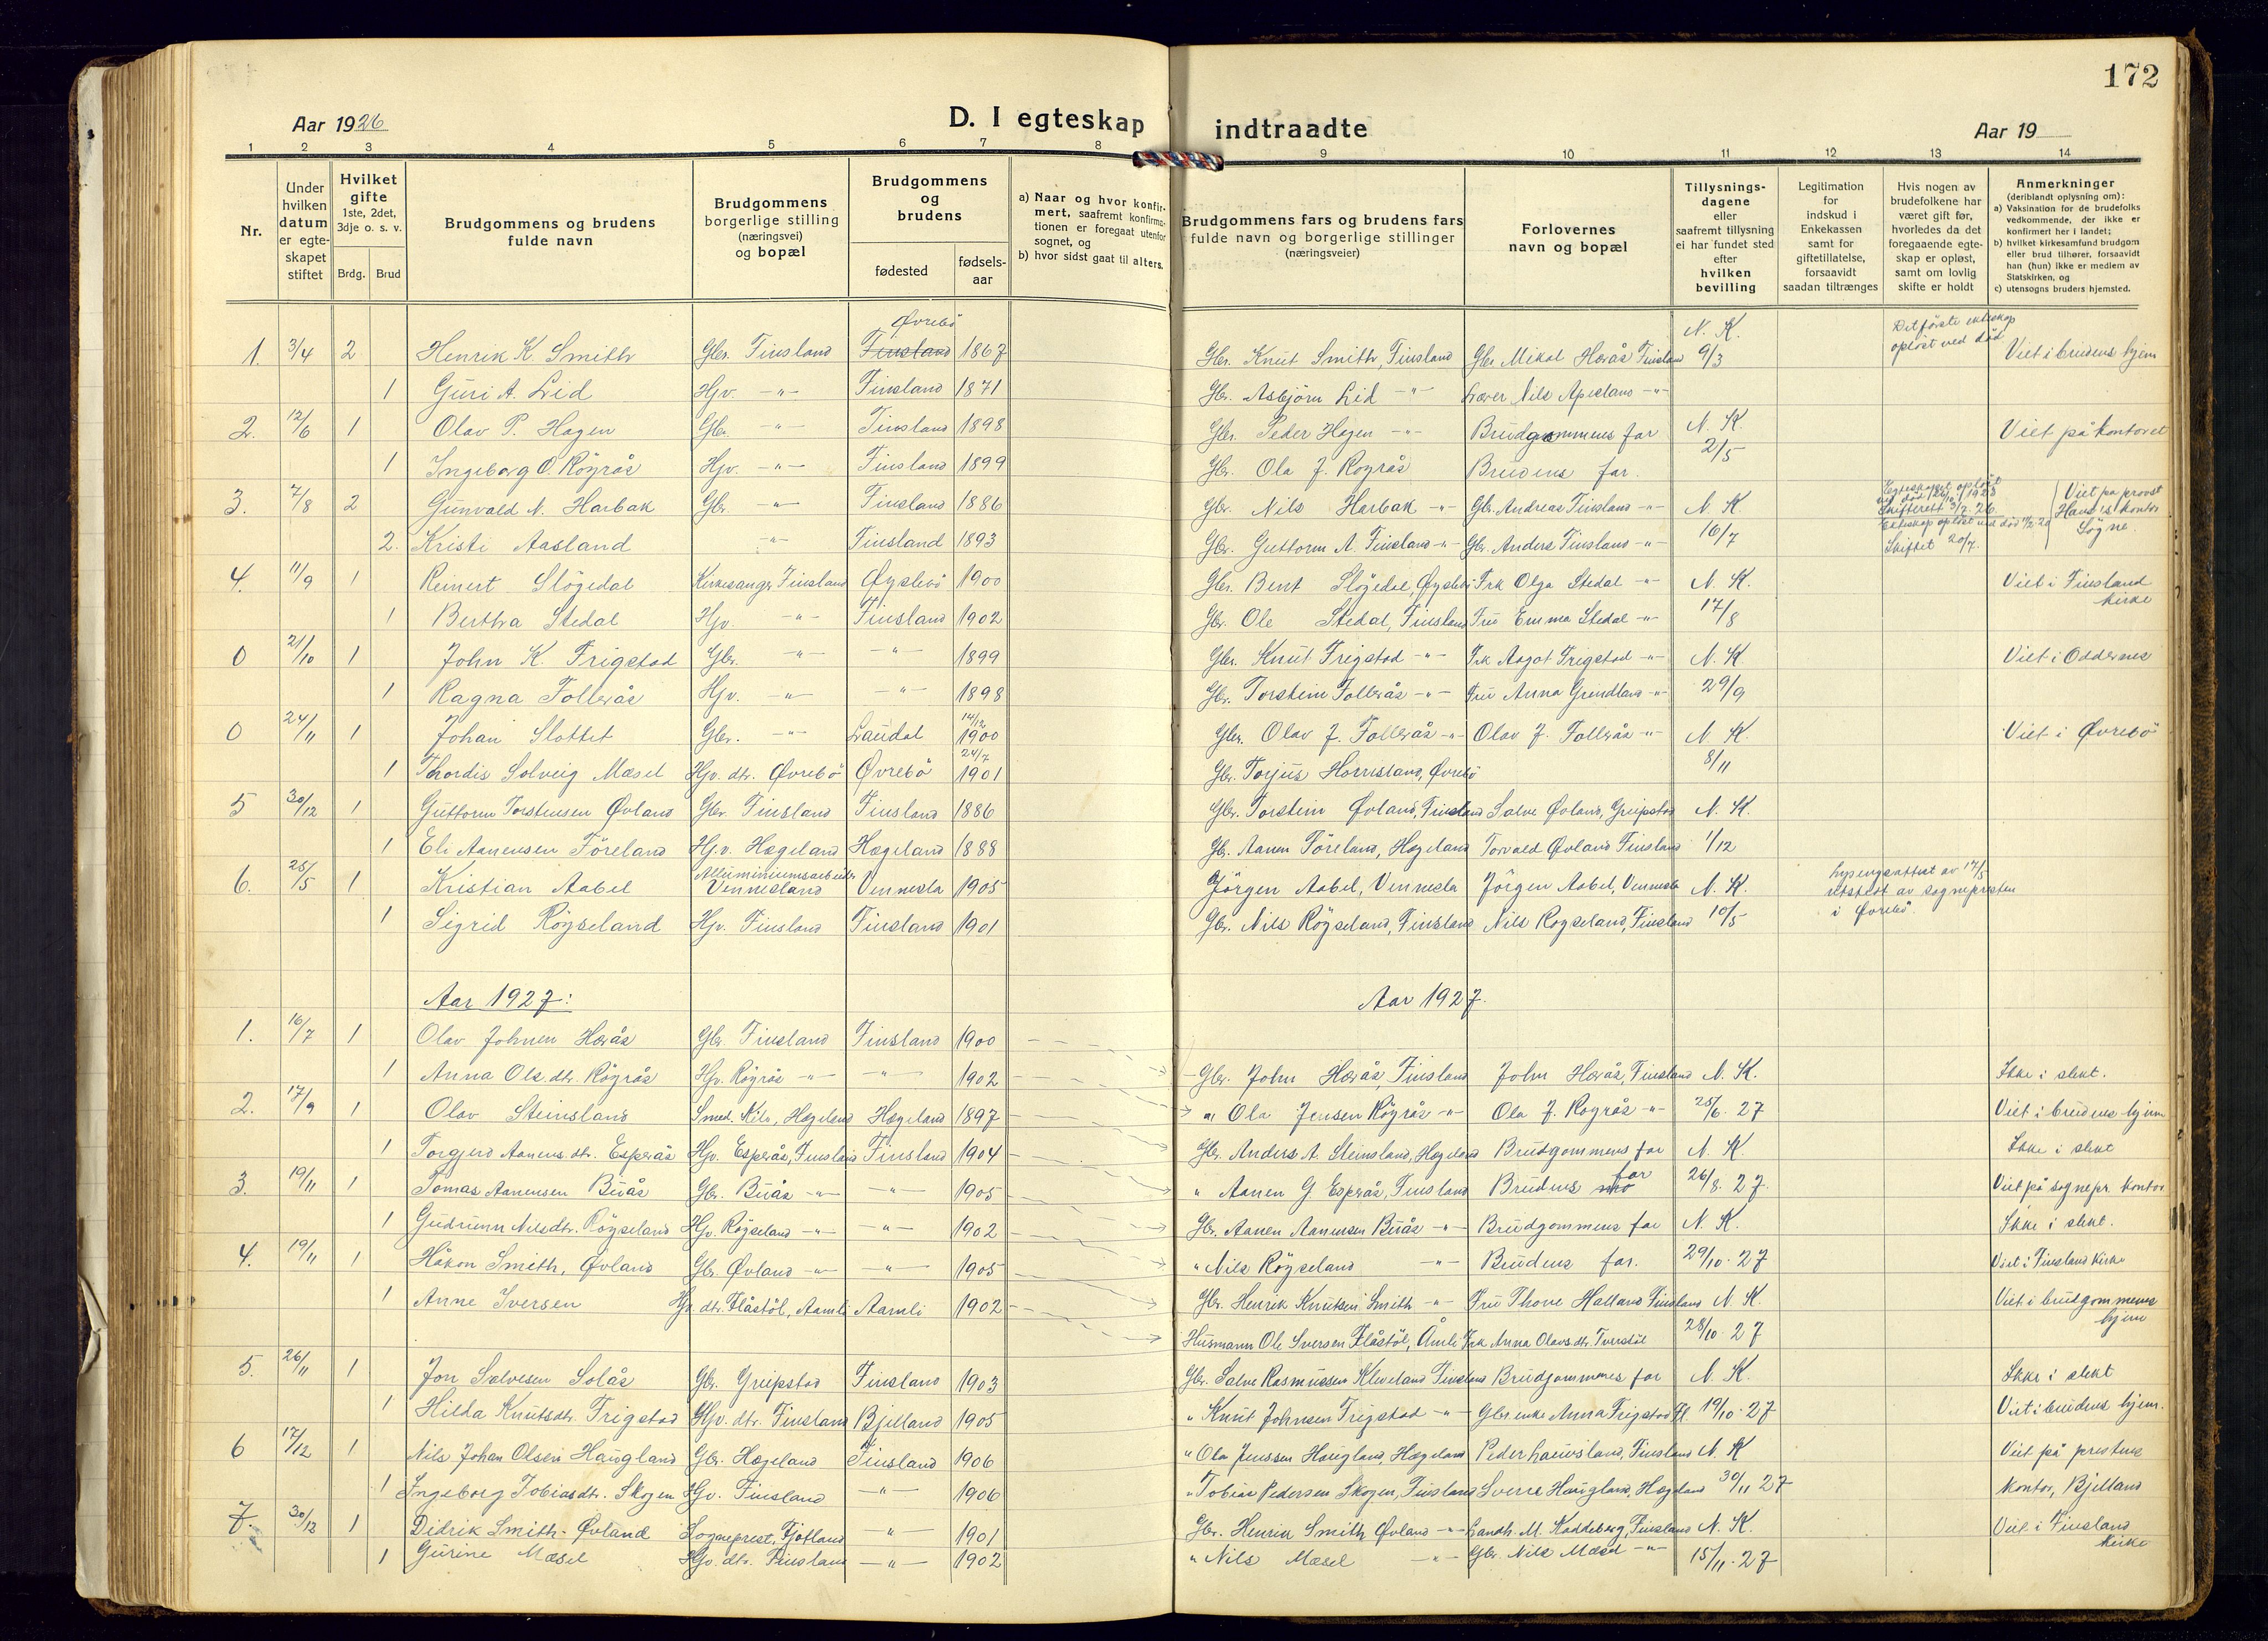 172
Aar 1926
D. I egteskap indtraadte
Aar 19
1 2 3 4 5 6 7 8 9 10 11 12 13 14
Nr.
Under hvilken datum er egteskapet stiftet
Hvilket gifte 1ste, 2det, 3dje o. s. v.
Brdg. Brud
Brudgommens og brudens fulde navn
Brudgommens borgerlige stilling (næringsvei) og bopæl
Brudgommens og brudens
fødested
fødsels-aar
a) Naar og hvor konfirmert, saafremt konfirmationen er foregaat utenfor sognet, og
b) hvor sidst gaat til alters.
Brudgommens fars og brudens fars fulde navn og borgerlige stillinger (næringsveier)
Forlovernes navn og bopæl
Tillysnings-dagene eller saafremt tillysning ei har fundet sted efter hvilken bevilling
Legitimation for indskud i Enkekassen samt for giftetillatelse, forsaavidt saadan tiltrænges
Hvis nogen av brudefolkene har været gift før, hvorledes da det foregaaende egteskap er opløst, samt om lovlig skifte er holdt
Anmerkninger (deriblandt oplysning om):
a) Vaksination for de brudefolks vedkommende, der ikke er konfirmert her i landet;
b) hvilket kirkesamfund brudgom eller brud tilhører, forsaavidt han (hun) ikke er medlem av Statskirken, og
c) utensogns bruders hjemsted.
1. 3/4 2 Henrik K. Smith Gbr. Finsland Øvrebö Finsland 1867 Gbr. Knut Smith, Finsland Gbr. Mikal Heraas Finsland N. K. 9/3 Det förste ekteskap oplöst ved död Viet i brudens hjem
1 Guri A. Lid Hjv. -"- Finsland 1871 Gbr. Asbjörn Lid -"- Lærer Nils Apesland -"-
2. 12/6 1 Olav P. Hagen Gbr. -"- Finsland 1898 Gbr. Peder Hagen -"- Brudgommens far N. K. Viet på kontoret
1 Ingeborg O. Röyrås Hjv. -"- Finsland 1899 Gbr. Ola J. Royrås Brudens far. 2/5
3. 7/8 2 Gunvald N. Harbak Gbr. -"- Finsland 1886 Gbr. Nils Harbak -"- Gbr. Andreas Finsland -"- N. K. Viet på provst Hans's kontor Sögne.
2. Kristi Aasland -"- Finsland 1893 Gbr. Guttorm A. Finsland -"- Gbr. Anders Finsland -"- 16/7 Skiftet 20/7.
4. 11/9 1 Reinert Slögedal Kirkesanger Finsland Öyslebö 1900 Gbr. Bent Slögedal, Öyslebö Frk Olga Stedal -"- N. K. Viet i Finsland kirke
1 Bertha Stedal Hjv. -"- Finsland 1902 Gbr. Ole Stedal, Finsland Fru Emma Stedal -"- 17/8
0 21/10 1 John K. Frigstad Gbr. -"- -"- 1899 Gbr. Knut Frigstad -"- Frk Aagot Frigstad -"- N. K. Viet i Oddernes
1 Ragna Follerås Hjv. -"- -"- 1898 Gbr. Torstein Follerås -"- Fru Anna Grundland -"- 29/9
0 24/11 1 Johan Slottet Gbr. -"- Laudal 14/12 1900 Gbr. Olav J. Follerås -"- Olav J. Follerås -"- N. K. Viet i Øvrebö
1 Thordis Solveig Mæsel Hjv. dtr. Øvrebö Øvrebö 24/7 1901 Gbr. Torjus Homesland, Øvrebö 8/11
5 30/12 1 Guttorm Torsteinsen Øvland Gbr. Finsland Finsland 1886 Gbr. Torstein Øvland, Finsland Salve Øvland, Greipstad N. K.
1 Eli Aanensen Föreland Hjv. Hægeland Hægeland 1888 Gbr. Aanen Föreland, Hægeland Torvald Øvland Finsland 1/12
6. 25/5 1 Kristian Aabel Alluminiumsarbeider Vennesland Vennesla 1905 Jörgen Aabel, Vennesla Jörgen Aabel, Vennesla N. K. Lysningsattest av 17/5 utstedt av sognepresten i Øvrebö.
1 Sigrid Röyseland Hjv. Finsland Finsland 1901 Gbr. Nils Röyseland, Finsland Nils Royseland, Finsland 10/5
Aar 1927: Aar 1927.
1. 16/7 1 Olav Johnsen Heråas Gbr. Finsland Finsland 1900
1 Anna Ols. dtr. Röyrås Hjv. Röyrås -"- -"- 1902 Gbr. John Herås, Finsland John Herås, Finsland N. K. Ikke i slekt.
2. 17/9 1 Olav Steinsland Smed. Kile, Hægeland Hægeland 1897 " Ola Jensen Röyrås -"- Ola J. Royrås -"- 25/6. 27 Viet i brudens hjem
1 Torgjerd Aanens. dtr. Esperås Hjv. Esperås, Finsland Finsland 1904 Gbr. Anders A. Steinsland, Hægeland Brudgommens far N. K. Ikke i slekt
3. 19/11 1 Tomas Aanensen Buås Gbr. Buås -"- -"- 1905 " Aanen G Esperås, Finsland Brudens far 26/8. 27. Viet på sognepr. kontor
1 Gudrunn Nilsdtr. Röyseland Hjv. Röyseland -"- -"- 1902 Gbr. Aanen Aanensen Buås -"- Brudgommens far N. K. Ikke i slekt.
4. 19/11 1 Håkon Smith, Øvland Gbr. Øvland -"- -"- 1905 " Nils Röyseland -"- Brudens far. 29/10. 27 Viet i Finsland kirke
1 Anne Iversen Hjv. dtr. Flåstöl, Aamli Aamli 1902 Gbr. Henrik Knutsen Smith -"- Fru Thone Halland Finsland N. K. Viet i brudgommens hjem
Husmann Ole Iversen Flåstöl, Åmli Frk Anna Olavsdtr. Tveitstöl 28/10. 27
5. 26/11 1 Jon Salvesen Solås Gbr. Greipstad Finsland 1903 Gbr. Salve Rasmussen Kleveland Finsland Brudgommens far N. K. Ikke i slekt
1 Hilda Knutsdtr. Frigstad Hjv. dtr. Finsland Bjelland 1905 " Knut Johnsen Frigstad -"- Gbr enke Anna Frigstad Fl. 19/10. 27 Viet i brudens hjem.
6 17/12 1 Nils Johan Olsen Haugland Gbr. Hægeland Finsland 1906 " Ola Jenssen Haugland, Hægeland Peder Lauvsland, Finsland N. K Viet på prestens
1 Ingeborg Tobiasdtr. Skogen Hjv. Finsland -"- 1906 " Tobias Pedersen Skogen, Finsland Sverre Haugland, Hægeland 30/11 27 kontor, Bjelland
7. 30/12 1 Didrik Smith-Øvland Sogneprest, Fjotland -"- 1901 Gbr. Henrik Smith Øvland -"- Landh. M. Kaddeberg, Finsland N. K. Viet i Finsland kirke
1 Gurine Mæsel Hjv. dtr. Finsland -"- 1902 " Nils Mæsel -"- Gbr. Nils Mæsel -"- 15/11. 27